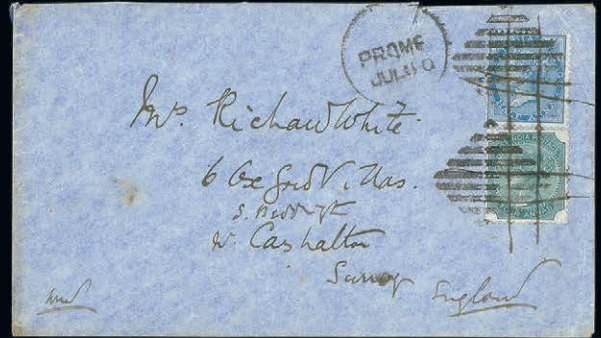 PROME
JUL
INDIA POSTAGE
Mrs Richard White
6 Oxford Villas.
Nr. Carshalton
Surrey
England